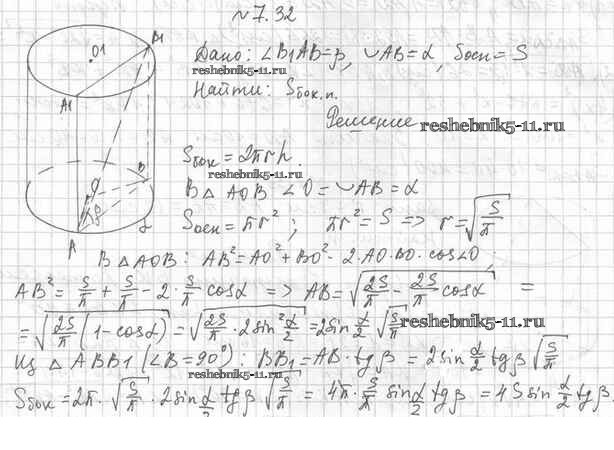 №7.32
Дано: ∠B1AB=β, ◡AB=α, Sосн=S
reshebnik5-11.ru
Найти: Sбок.п.
Решение
reshebnik5-11.ru
Sбок=2πrh.
reshebnik5-11.ru
В △ AOB ∠O=◡AB=α
Sосн=πr²; πr²=S => r=√(S/π)
В △AOB: AB²=AO²+BO²-2·AO·BO·cos∠O;
AB²=S/π+S/π-2·S/π cosα => AB=√(2S/π-2S/π cosα) =
=√(2S/π(1-cosα))=√(2S/π·2sin²α/2)=2sinα/2 √(S/π)
reshebnik5-11.ru
Из △ABB1 (∠B=90°): BB1=AB·tgβ=2sinα/2 tgβ √(S/π)
reshebnik5-11.ru
Sбок=2π·√(S/π)·2sinα/2 tgβ √(S/π)=4π·S/π sinα/2 tgβ=4S sinα/2 tgβ.
O1
B1
A1
B
O
β
A
α